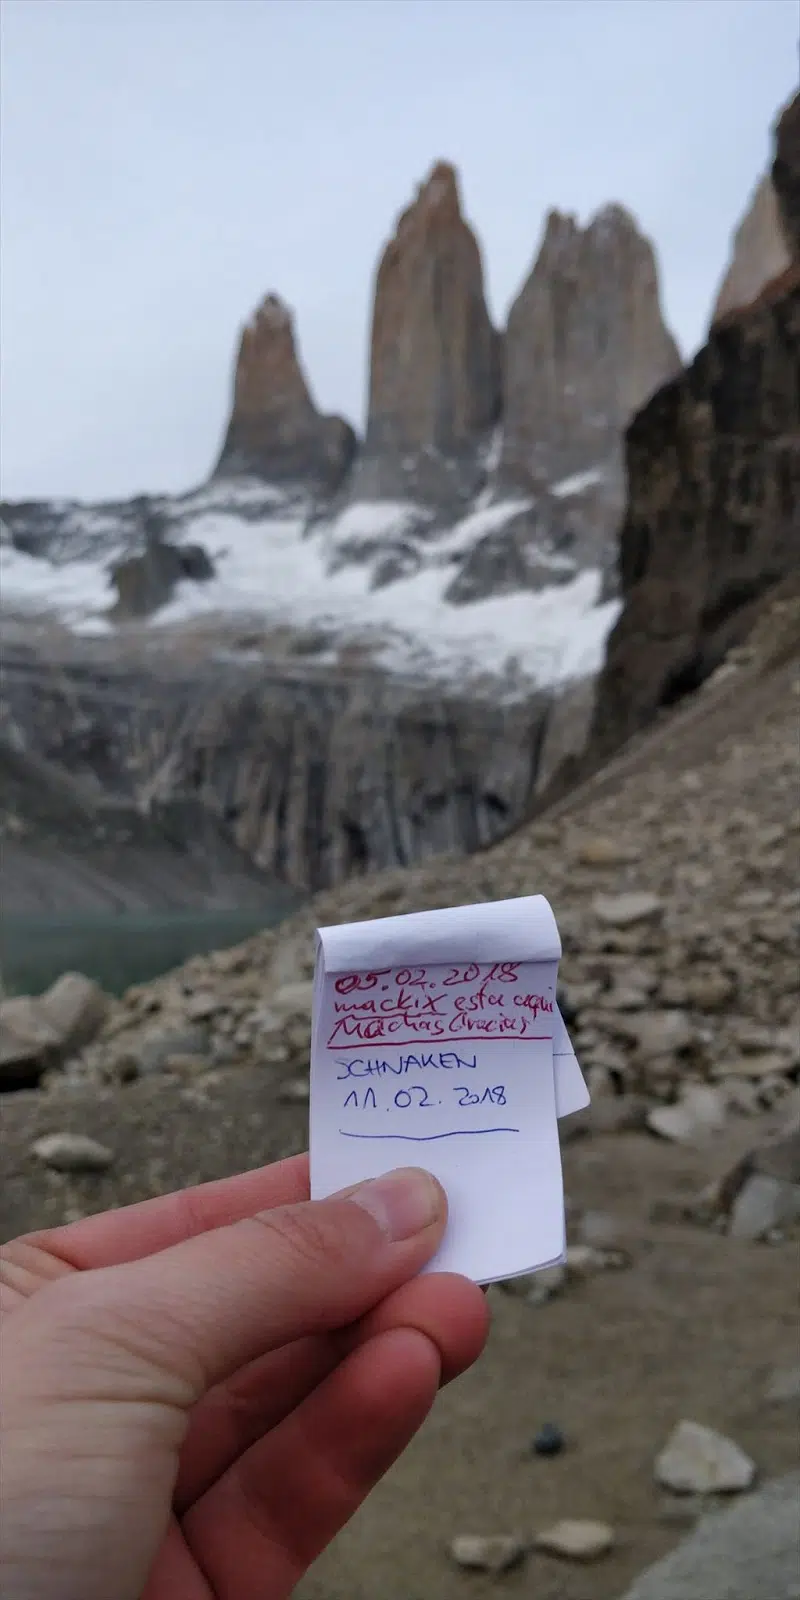 05.02.2018
mackix esta aqui
Machas Gracias
SCHNAKEN
11.02.2018